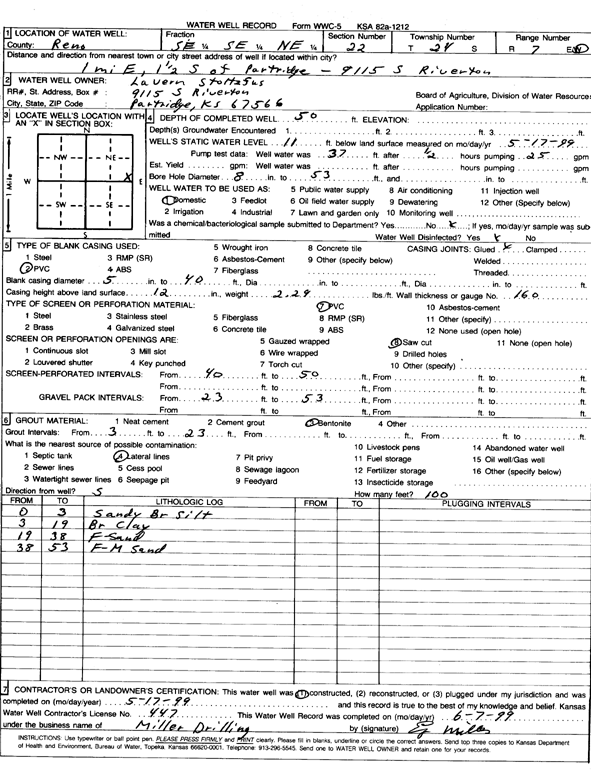 WATER WELL RECORD Form WWC-5 KSA 82a-1212
1 LOCATION OF WATER WELL: Fraction Section Number Township Number Range Number
County: Reno SE ¼ SE ¼ NE ¼ 22 T 24 S R 7 E/W
Distance and direction from nearest town or city street address of well if located within city?
1 mi E, 1½ S of Partridge - 9115 S Riverton
2 WATER WELL OWNER: LaVern Stoltzfus
RR#, St. Address, Box # : 9115 S Riverton Board of Agriculture, Division of Water Resources
City, State, ZIP Code : Partridge, KS 67566 Application Number:
3 LOCATE WELL'S LOCATION WITH AN "X" IN SECTION BOX:
N
NW NE
W X E
SW SE
S
1 Mile
4 DEPTH OF COMPLETED WELL 50 ft. ELEVATION:
Depth(s) Groundwater Encountered 1. ft. 2. ft. 3. ft.
WELL'S STATIC WATER LEVEL 11 ft. below land surface measured on mo/day/yr 5-17-99
Pump test data: Well water was 37 ft. after ½ hours pumping 25 gpm
Est. Yield gpm: Well water was ft. after hours pumping gpm
Bore Hole Diameter 8 in. to 53 ft., and in. to ft.
WELL WATER TO BE USED AS: 5 Public water supply 8 Air conditioning 11 Injection well
1 Domestic 3 Feedlot 6 Oil field water supply 9 Dewatering 12 Other (Specify below)
2 Irrigation 4 Industrial 7 Lawn and garden only 10 Monitoring well
Was a chemical/bacteriological sample submitted to Department? Yes No X; If yes, mo/day/yr sample was sub
mitted Water Well Disinfected? Yes X No
5 TYPE OF BLANK CASING USED: 5 Wrought iron 8 Concrete tile CASING JOINTS: Glued X Clamped
1 Steel 3 RMP (SR) 6 Asbestos-Cement 9 Other (specify below) Welded
2 PVC 4 ABS 7 Fiberglass Threaded
Blank casing diameter 5 in. to 40 ft., Dia in. to ft., Dia in. to ft.
Casing height above land surface 12 in., weight 2.29 lbs./ft. Wall thickness or gauge No. 160
TYPE OF SCREEN OR PERFORATION MATERIAL: 7 PVC 10 Asbestos-cement
1 Steel 3 Stainless steel 5 Fiberglass 8 RMP (SR) 11 Other (specify)
2 Brass 4 Galvanized steel 6 Concrete tile 9 ABS 12 None used (open hole)
SCREEN OR PERFORATION OPENINGS ARE: 5 Gauzed wrapped 8 Saw cut 11 None (open hole)
1 Continuous slot 3 Mill slot 6 Wire wrapped 9 Drilled holes
2 Louvered shutter 4 Key punched 7 Torch cut 10 Other (specify)
SCREEN-PERFORATED INTERVALS: From 40 ft. to 50 ft., From ft. to ft.
From ft. to ft., From ft. to ft.
GRAVEL PACK INTERVALS: From 23 ft. to 53 ft., From ft. to ft.
From ft. to ft., From ft. to ft.
6 GROUT MATERIAL: 1 Neat cement 2 Cement grout 3 Bentonite 4 Other
Grout Intervals: From 3 ft. to 23 ft., From ft. to ft., From ft. to ft.
What is the nearest source of possible contamination: 10 Livestock pens 14 Abandoned water well
1 Septic tank 4 Lateral lines 7 Pit privy 11 Fuel storage 15 Oil well/Gas well
2 Sewer lines 5 Cess pool 8 Sewage lagoon 12 Fertilizer storage 16 Other (specify below)
3 Watertight sewer lines 6 Seepage pit 9 Feedyard 13 Insecticide storage
Direction from well? S How many feet? 100
FROM TO LITHOLOGIC LOG FROM TO PLUGGING INTERVALS
0 3 Sandy Br Silt
3 19 Br Clay
19 38 F-Sand
38 53 F-M Sand
7 CONTRACTOR'S OR LANDOWNER'S CERTIFICATION: This water well was (1) constructed, (2) reconstructed, or (3) plugged under my jurisdiction and was
completed on (mo/day/year) 5-17-99 and this record is true to the best of my knowledge and belief. Kansas
Water Well Contractor's License No. 447 This Water Well Record was completed on (mo/day/yr) 6-7-99
under the business name of Miller Drilling by (signature) Miller
INSTRUCTIONS: Use typewriter or ball point pen. PLEASE PRESS FIRMLY and PRINT clearly. Please fill in blanks, underline or circle the correct answers. Send top three copies to Kansas Department
of Health and Environment, Bureau of Water, Topeka, Kansas 66620-0001. Telephone: 913-296-5545. Send one to WATER WELL OWNER and retain one for your records.